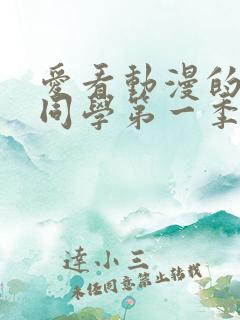 愛看動漫的
同學第一季
達小三
未經同意禁止轉載